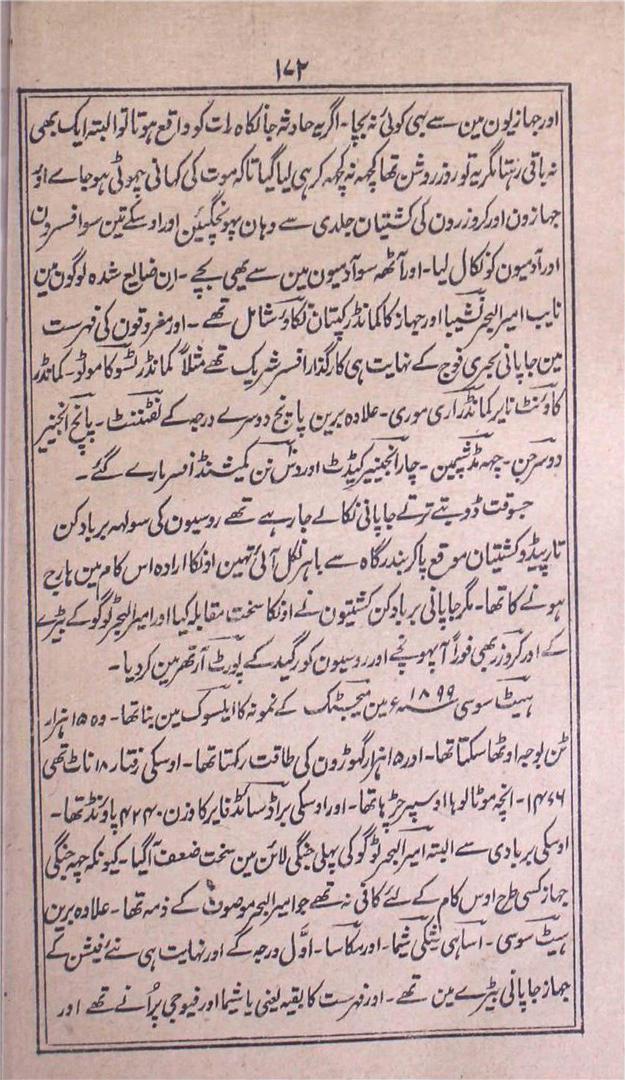 ۱۷۲
اور جہازیون مین سے بہی کوئی نہ بچا۔ اگر یہ حادثہ جانکاہ رات کو واقع ہوتا تو البتہ ایک بھی
نہ باقی رہتا مگر یہ تو روز روشن تھا کچہہ نہ کچہہ کر ہی لیا گیا تاکہ موت کی کہانی چہوٹی ہو جاے اور
جہازون اور کروزرون کی کشتیان جلدی سے وہان پہونچگیئن اور اوسکے تین سو افسرون
اور آدمیون کو نکال لیا۔ اور آٹھہ سو آدمیون مین سے یھی بچے۔ ان ضایع شدہ لوگون مین
نایب امیر البحر نشیبا اور جہاز کا کمانڈر کپتان نگاؤ شامل تھے۔ اور مغروقون کی فہرست
مین جاپانی بحری فوج کے نہایت ہی کارگذار افسر شریک تھے مثلاً کمانڈر ٹسوکاموٹو۔ کمانڈر
کاوئنٹ نایر کمانڈر اری موری۔ علاوہ برین پانچ دوسرے درجہ کے لفٹننٹ۔ پانچ انجنیر
دو سرجن۔ چہہ مڈشپمین۔ چار انجنیر کیڈٹ اور دس نن کمیشنڈ افسر مارے گئے۔
جسوقت ڈوبتے ترتے جاپانی نکالے جارہے تھے روسیون کی سولہہ برباد کن
تارپیڈو کشتیان موقع پاکر بندرگاہ سے باہر نکل آئی تہین اونکا ارادہ اس کام مین ہارج
ہونے کا تھا۔ مگر جاپانی برباد کن کشتیون نے اونکا سخت مقابلہ کیا اور امیر البحر ٹوگو کے بیڑے
کے اور کروزر بھی فوراً آپہونچے اور روسیون کو رگید کے پورٹ آرتھر مین کردیا۔
ہیٹ سوسی ۱۸۹۹ء مین میجسٹک کے نمونہ کا ایلسوک مین بنا تھا۔ وہ ۱۵ ہزار
ٹن بوجہ اوٹھا سکتا تھا۔ اور ۱۵ ہزار گہوڑون کی طاقت رکہتا تھا۔ اوسکی رفتار ۱۸ ناٹ تھی
۱۴۷۶۔ انچہ موٹا لوہا اوسپر چڑہا تھا۔ اور اوسکی براڈ سائڈ فایر کا وزن ۴۲۴۰ پاونڈ تھا۔
اوسکی بربادی سے البتہ امیر البحر ٹوگو کی پہلی جنگی لائن مین سخت ضعف آگیا۔ کیونکہ چہہ جنگی
جہاز کسی طرح اوس کام کے لئے کافی نہ تھے جو امیر البحر موصوف کے ذمہ تھا۔ علاوہ برین
ہیٹ سوسی۔ اساہی شکی شیما۔ اور مکاسا۔ اوّل درجہ کے اور نہایت ہی نئے فیشن کے
جہاز جاپانی بیڑے مین تھے۔ اور فہرست کا بقیہ یعنی یاشیما اور فیوجی پُرانے تھے اور